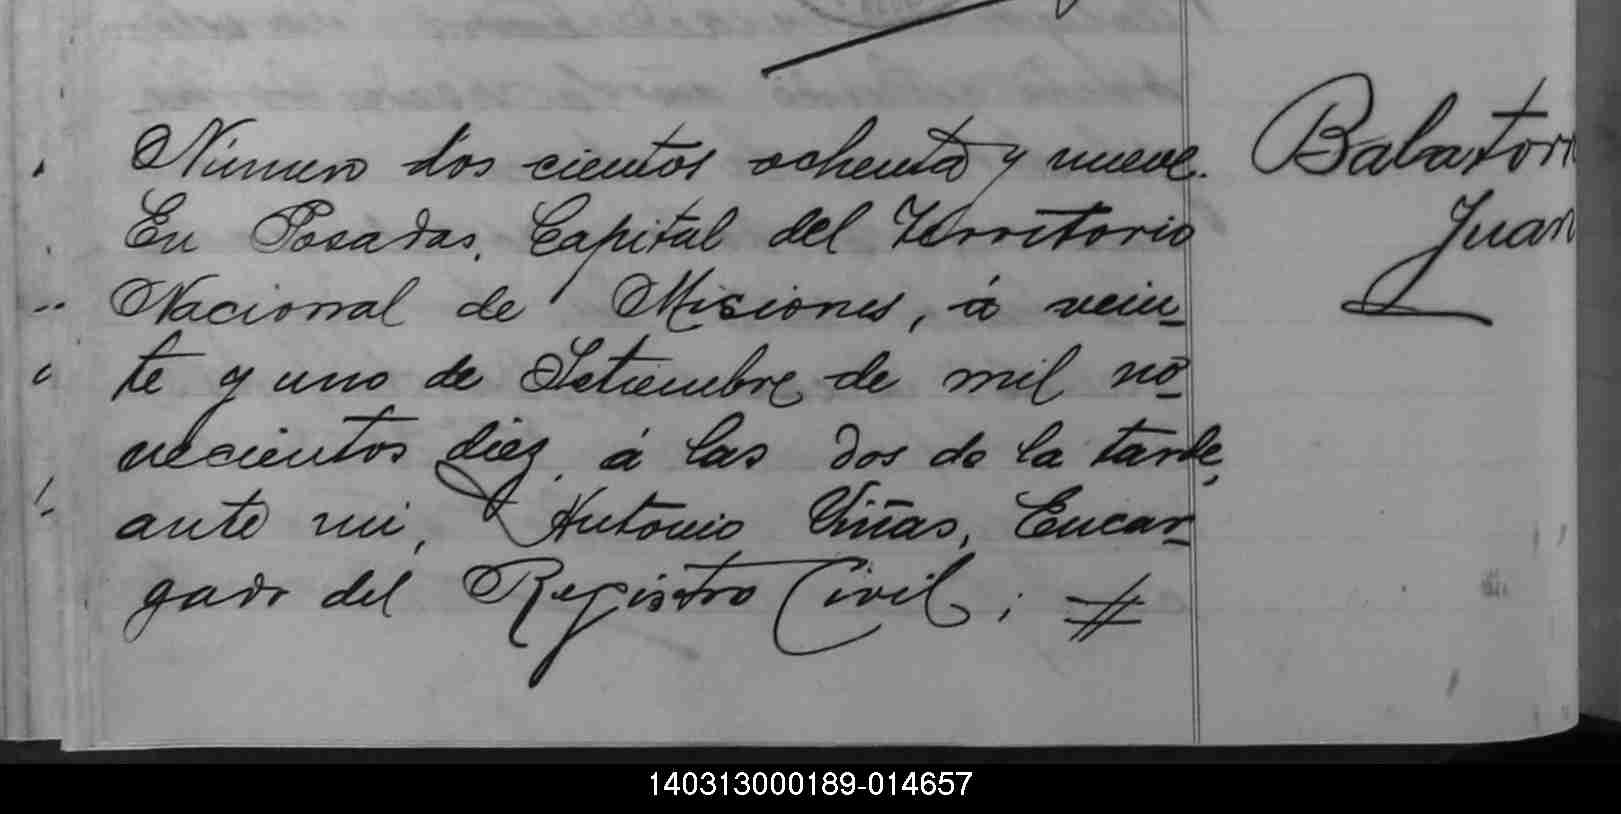 Número dos cientos ochenta y nueve.
En Posadas, Capital del Territorio
Nacional de Misiones, á vein-
te y uno de Setiembre de mil no-
vecientos diez, á las dos de la tarde,
ante mi, Antonio Viñas, Encar-
gado del Registro Civil; #
Balatorr
Juan
140313000189-014657